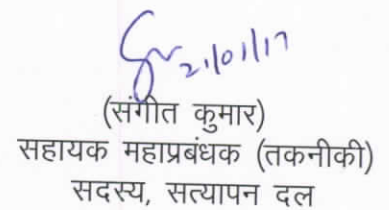 21/01/17
(संगीत कुमार)
सहायक महाप्रबंधक (तकनीकी)
सदस्य, सत्यापन दल